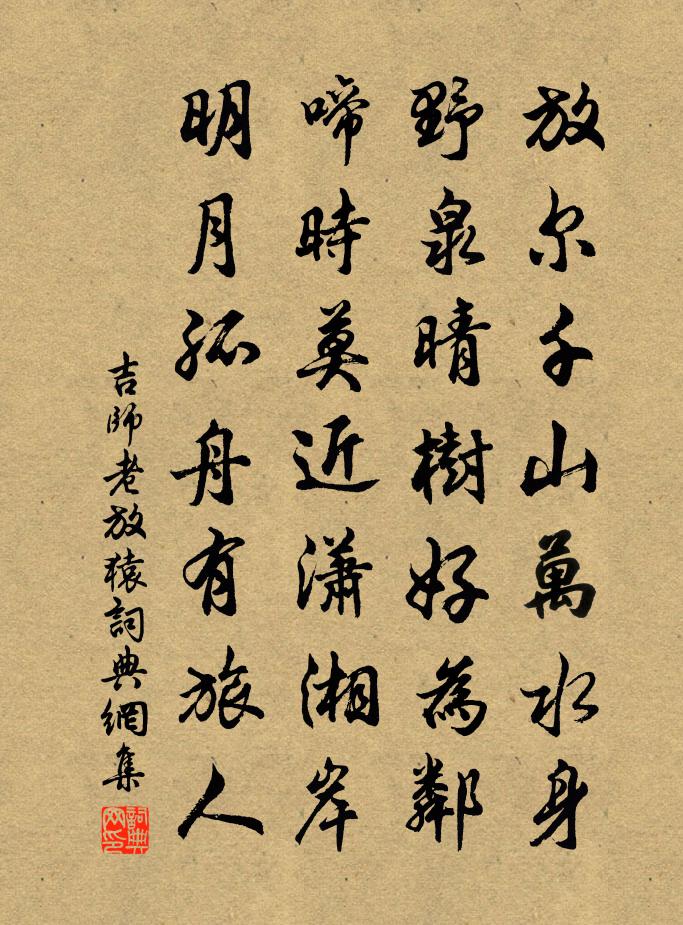 放尔千山萬水身
野泉晴樹好為鄰
啼時莫近瀟湘岸
明月孤舟有旅人
吉師老放猿詞典網集
詞典網印